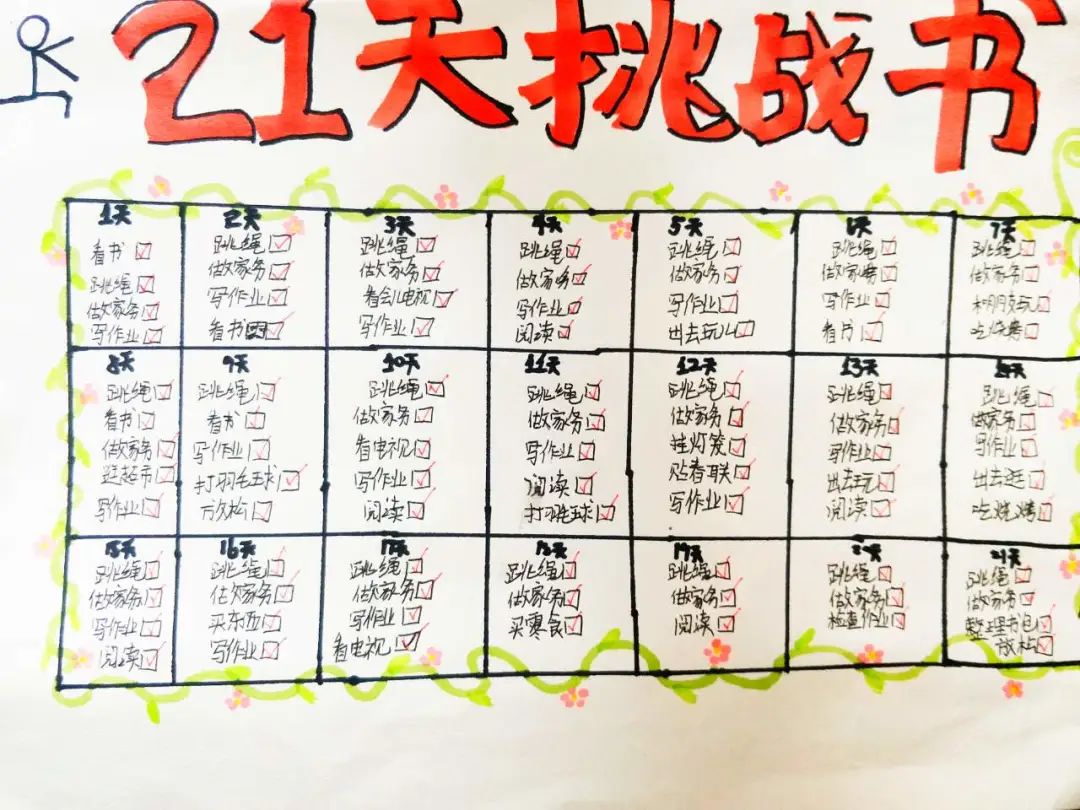 21天挑战书
1天
看书
跳绳
做家务
写作业
2天
跳绳
做家务
写作业
看书
3天
跳绳
做家务
看会儿电视
写作业
4天
跳绳
做家务
写作业
阅读
5天
跳绳
做家务
写作业
出去玩儿
6天
跳绳
做家务
写作业
看书
7天
跳绳
做家务
和朋友玩
吃烧烤
8天
跳绳
看书
做家务
逛超市
写作业
9天
跳绳
看书
写作业
打羽毛球
放松
10天
跳绳
做家务
看电视
写作业
阅读
11天
跳绳
做家务
写作业
阅读
打羽毛球
12天
跳绳
做家务
挂灯笼
贴春联
写作业
13天
跳绳
做家务
写作业
出去玩
阅读
14天
跳绳
做家务
写作业
出去逛
吃烧烤
15天
跳绳
做家务
写作业
阅读
16天
跳绳
做家务
买东西
写作业
17天
跳绳
做家务
写作业
看电视
18天
跳绳
做家务
买零食
19天
跳绳
做家务
阅读
20天
跳绳
做家务
检查作业
21天
跳绳
做家务
整理书包
放松